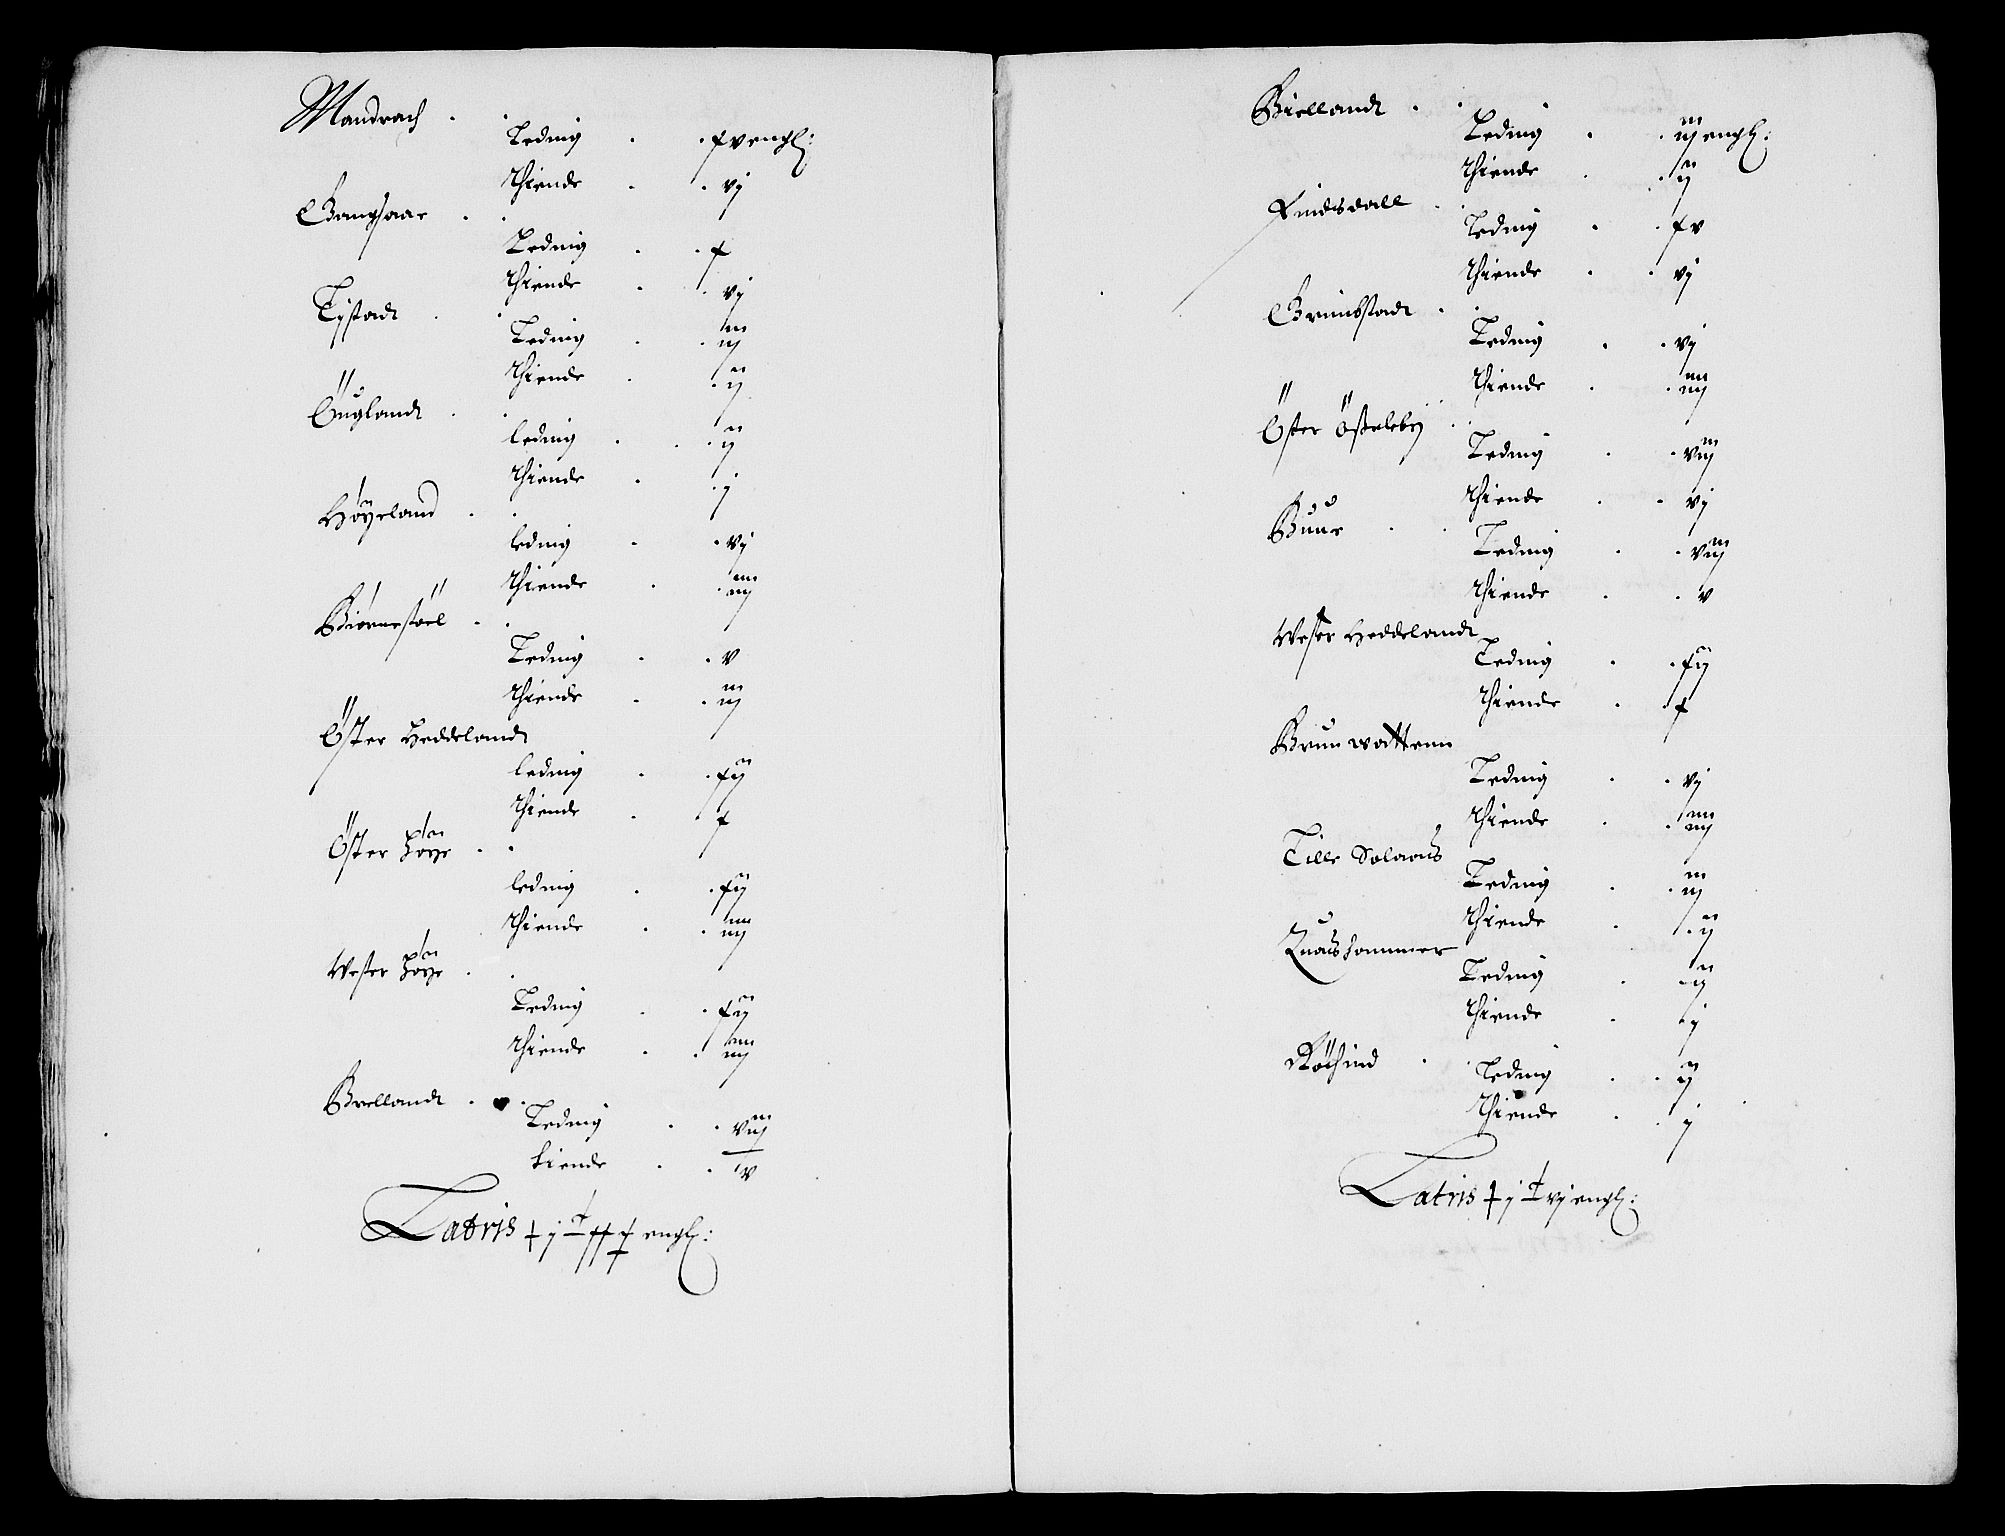 Mandrach . .
Leding . . xv engl:
thiende . . vj
Gangsaae . .
Leding . . x
thiende . . vj
Tystadt . .
Leding . . iij
thiende . . ij
Öuglandt . .
leding . . ij
thiende . . j
Höyeland . .
leding . . vj
thiende . . iiij
Biörnestöel . .
Leding . . v
thiende . . iij
Öster Heddelandt
leding . . xij
thiende . . x
Öster Höye . .
leding . . xij
thiende . . iiij
Vester Höye . .
Leding . . xij
thiende . . iiij
Brellandt . .
Leding . . viij
tiende . . v
Latris engl:
Biellandt . .
Leding . . iij engl:
thiende . . ij
Findsdall . .
Leding . . xv
thiende . . vj
Grimbstadt . .
Leding . . vj
thiende . . iiij
Öster . .
Leding . . viij
thiende . . vj
Buue . .
Leding . . viij
thiende . . v
Vester Heddelandt
Leding . . xij
thiende . . x
Brunvattenn
Leding . . vj
thiende . . iiij
Lille Solaas
Leding . . iij
thiende . . ij
Quaashammer
Leding . . ij
thiende . . j
Röthind . .
Leding . . ij
thiende . . j
Latris vj engl: